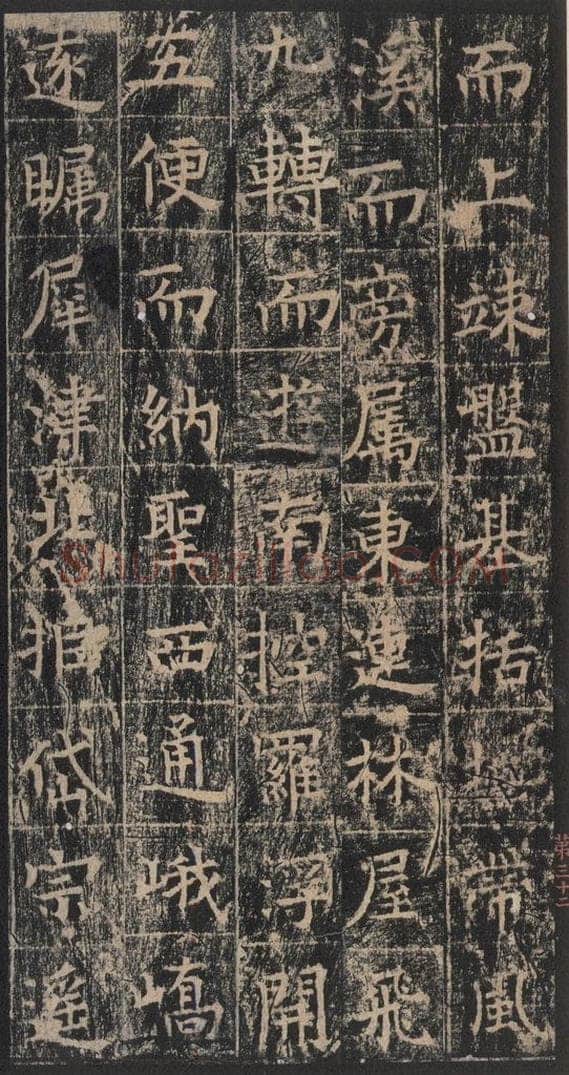 而上竦盤基括帶風
溪而旁属東連林屋飛
九轉而遊南控羅浮開
五便而納聖西通峨嶠
遂矚犀津北招岱宗遥
第三十二